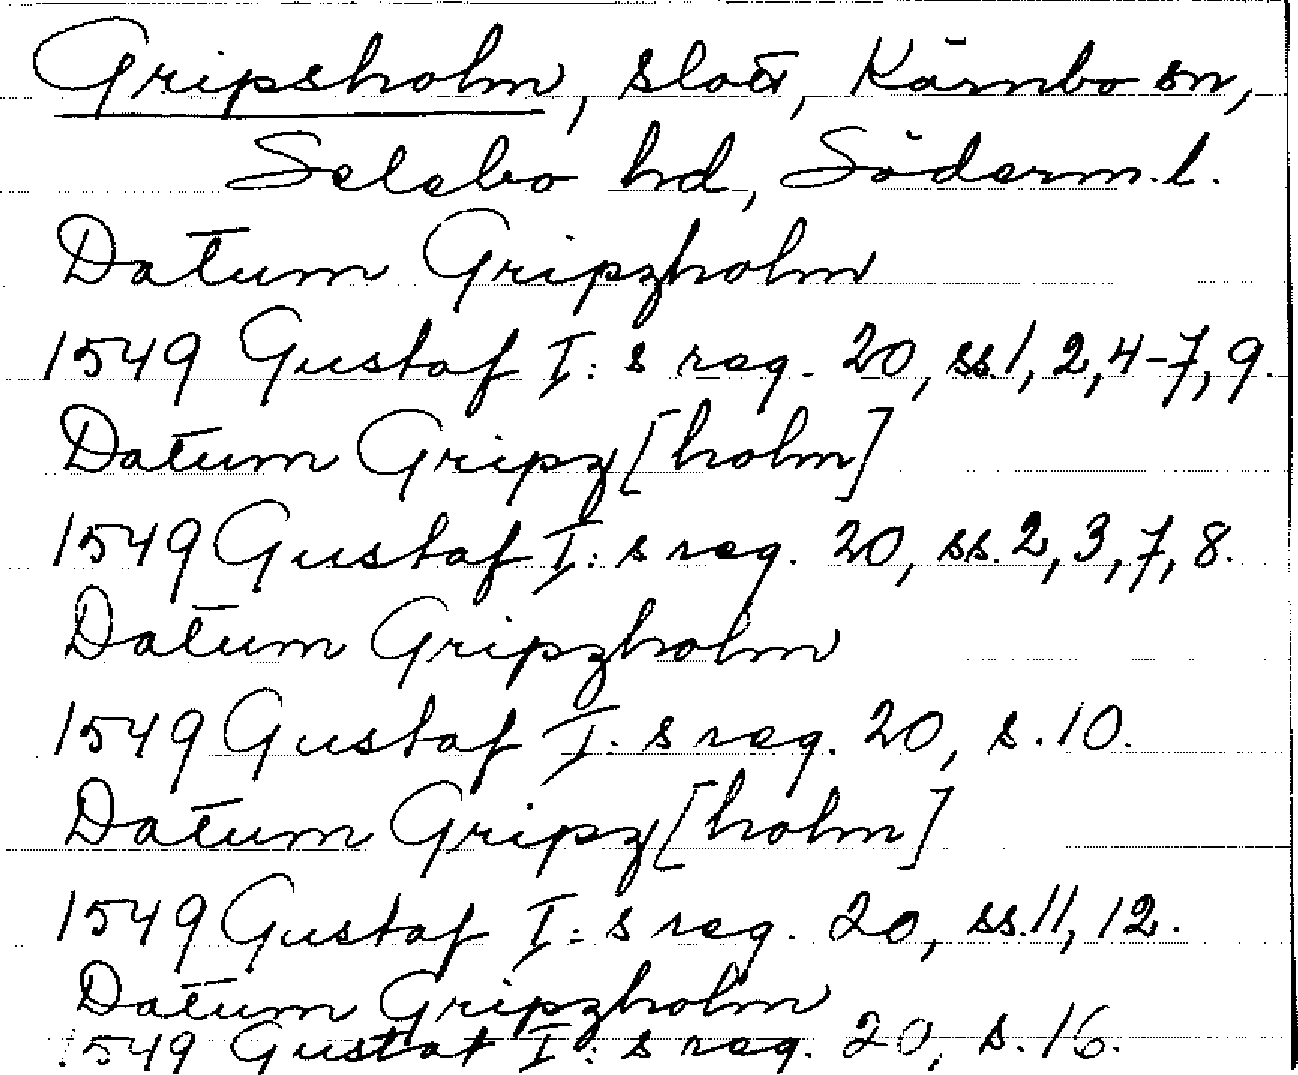 Gripsholm, slott, Kärnbo sn,
Selebo hd, Söderm.l.
Datum Gripzholm
1549 Gustaf I:s reg. 20, ss.1, 2, 4-7, 9.
Datum Gripz[holm]
1549 Gustaf I:s reg. 20, ss.2, 3, 7, 8.
Datum Gripzholm
1549 Gustaf I:s reg. 20, s.10.
Datum Gripz[holm]
1549 Gustaf I:s reg. 20, ss.11, 12.
Datum Gripzholm
1549 Gustaf I:s reg. 20, s.16.